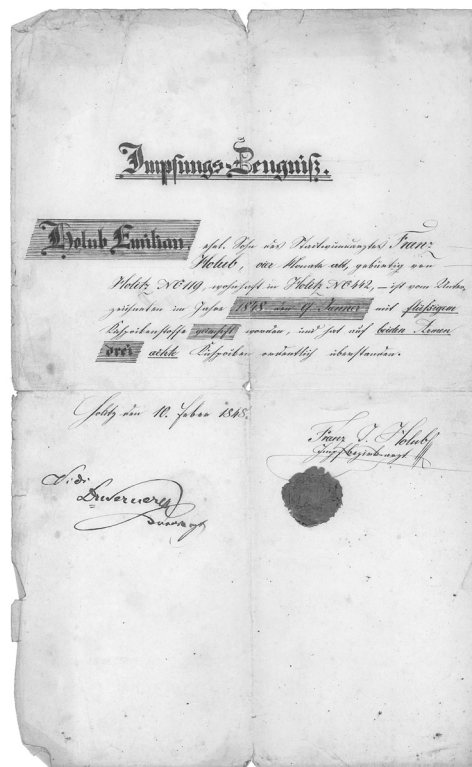 Impfungs-Zeugniß.
Holub Emilian, ehel. Sohn des Stadtwundarztes Franz
Holub, vier Monate alt, gebürtig von
Holitz NC 119, wohnhaft in Holitz NC 442, – ist vom Unter-
zeichneten im Jahre 1848 den 9. Januer mit flüßigem
Kuhpokenstoffe geimpft worden, und hat auf beiden Armen
drei achte Kuhpoken ordentlich überstanden.
Holitz den 10. Feber 1848.
Franz J. Holub
Impfbezirksarzt
Vidi